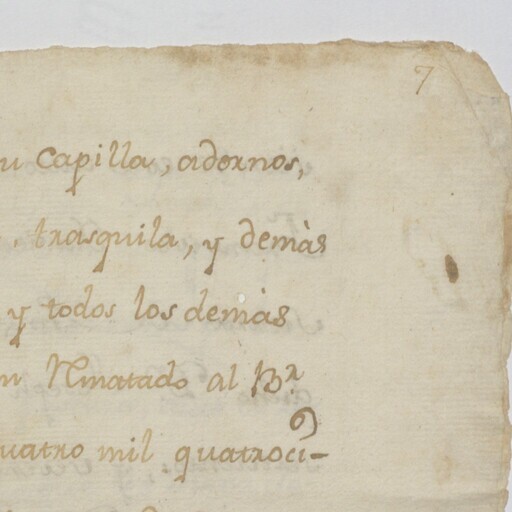 7
u Capilla, adornos,
trasquila, y demàs
y todos los demàs
Rmatado al Br
uatro mil quatroci-